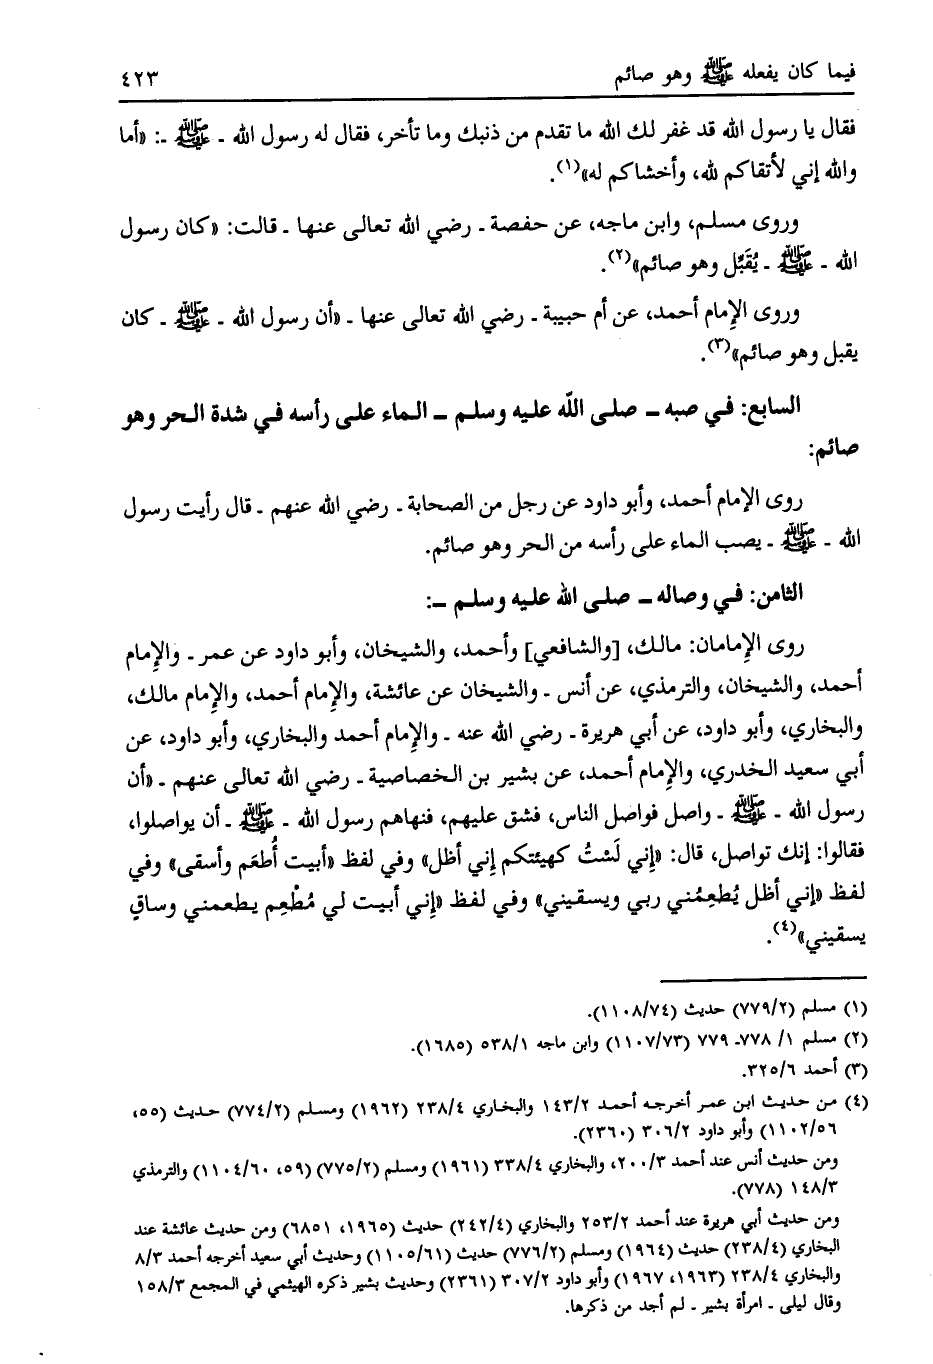 فيما كان يفعله ﷺ وهو صائم ٤٢٣
فقال يا رسول الله قد غفر لك الله ما تقدم من ذنبك وما تأخر، فقال له رسول الله ـ ﷺ ـ: «أما
والله إني لأتقاكم لله، وأخشاكم له»(١).
وروى مسلم، وابن ماجه، عن حفصة ـ رضي الله تعالى عنها ـ قالت: «كان رسول
الله ـ ﷺ ـ يُقَبِّل وهو صائم»(٢).
وروى الإمام أحمد، عن أم حبيبة ـ رضي الله تعالى عنها ـ «أن رسول الله ـ ﷺ ـ كان
يقبل وهو صائم»(٣).
السابع: في صبه ـ صلى الله عليه وسلم ـ الماء على رأسه في شدة الحر وهو
صائم:
روى الإمام أحمد، وأبو داود عن رجل من الصحابة ـ رضي الله عنهم ـ قال رأيت رسول
الله ـ ﷺ ـ يصب الماء على رأسه من الحر وهو صائم.
الثامن: في وصاله ـ صلى الله عليه وسلم ـ:
روى الإمامان: مالك، [والشافعي] وأحمد، والشيخان، وأبو داود عن عمر ـ والإمام
أحمد، والشيخان، والترمذي، عن أنس ـ والشيخان عن عائشة، والإمام أحمد، والإمام مالك،
والبخاري، وأبو داود، عن أبي هريرة ـ رضي الله عنه ـ والإمام أحمد والبخاري، وأبو داود، عن
أبي سعيد الخدري، والإمام أحمد، عن بشير بن الخصاصية ـ رضي الله تعالى عنهم ـ «أن
رسول الله ـ ﷺ ـ واصل فواصل الناس، فشق عليهم، فنهاهم رسول الله ـ ﷺ ـ أن يواصلوا،
فقالوا: إنك تواصل، قال: «إني لَسْتُ كهيئتكم إني أظل» وفي لفظ «أبيت أُطعَم وأسقى» وفي
لفظ «إني أظل يُطعِمُني ربي ويسقيني» وفي لفظ «إني أبيت لي مُطْعِم يطعمني وساقٍ
يسقيني»(٤).
(١) مسلم (٧٧٩/٢) حديث (١١٠٨/٧٤).
(٢) مسلم ١/ ٧٧٨ـ ٧٧٩ (١١٠٧/٧٣) وابن ماجه ٥٣٨/١ (١٦٨٥).
(٣) أحمد ٣٢٥/٦.
(٤) من حديث ابن عمر أخرجه أحمد ١٤٣/٢ والبخاري ٢٣٨/٤ (١٩٦٢) ومسلم (٧٧٤/٢) حديث (٥٥،
١١٠٢/٥٦) وأبو داود ٣٠٦/٢ (٢٣٦٠).
ومن حديث أنس عند أحمد ٢٠٠/٣، والبخاري ٣٣٨/٤ (١٩٦١) ومسلم (٧٧٥/٢) (٥٩، ١١٠٤/٦٠) والترمذي
١٤٨/٣ (٧٧٨).
ومن حديث أبي هريرة عند أحمد ٢٥٣/٢ والبخاري (٢٤٢/٤) حديث (١٩٦٥، ٦٨٥١) ومن حديث عائشة عند
البخاري (٢٣٨/٤) حديث (١٩٦٤) ومسلم (٧٧٦/٢) حديث (١١٠٥/٦١) وحديث أبي سعيد أخرجه أحمد ٨/٣
والبخاري ٢٣٨/٤ (١٩٦٣، ١٩٦٧) وأبو داود ٣٠٧/٢ (٢٣٦١) وحديث بشير ذكره الهيثمي في المجمع ١٥٨/٣
وقال ليلى ـ امرأة بشير ـ لم أجد من ذكرها.